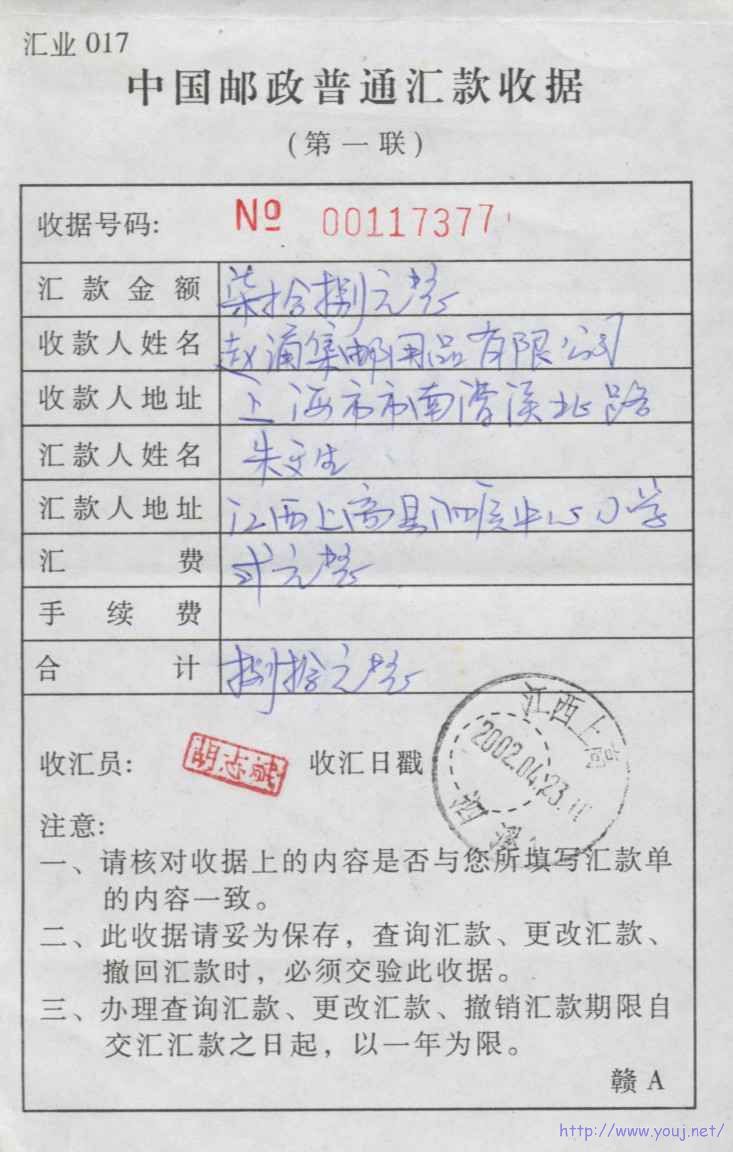 汇业 017
中国邮政普通汇款收据
(第一联)
收据号码: № 00117377
汇款金额 柒拾捌元整
收款人姓名 赵涌集邮用品有限公司
收款人地址 上海市南漕溪北路
汇款人姓名 朱文生
汇款人地址 江西上高县泗溪中心小学
汇费 贰元整
手续费
合计 捌拾元整
江西上高
2002.04.23
收汇员: 胡志斌 收汇日戳
注意:
一、请核对收据上的内容是否与您所填写汇款单
的内容一致。
二、此收据请妥为保存，查询汇款、更改汇款、
撤回汇款时，必须交验此收据。
三、办理查询汇款、更改汇款、撤销汇款期限自
交汇汇款之日起，以一年为限。
赣 A
http://www.youj.net/